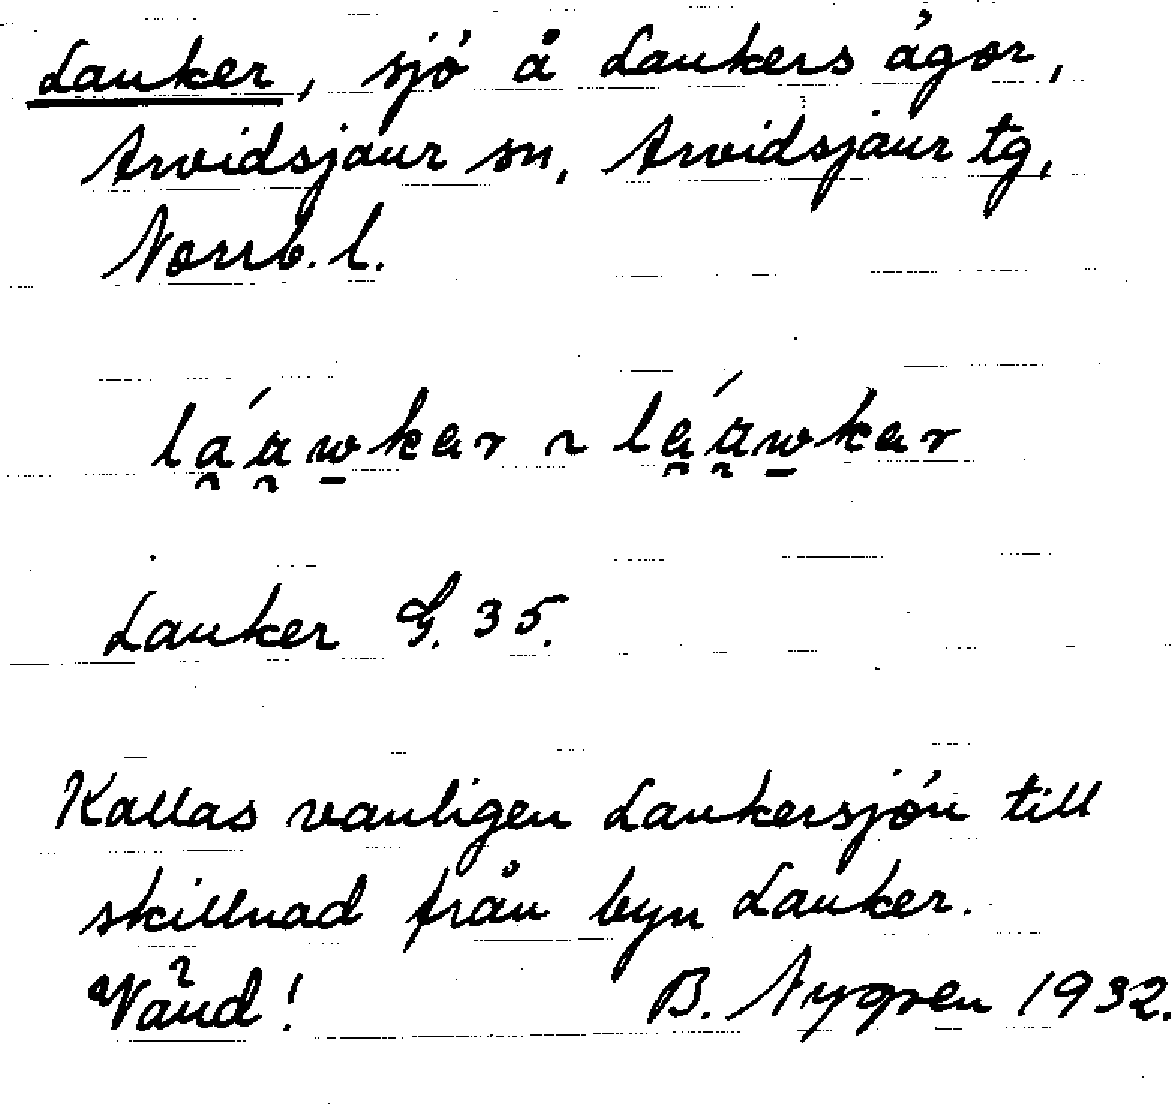 Lauker, sjö å Laukers ägor,
Arvidsjaur sn, Arvidsjaur tg,
Norrb. l.
Lauker G. 35.
Kallas vanligen Laukersjön till
skillnad från byn Lauker.
Vänd! B. Nygren 1932.